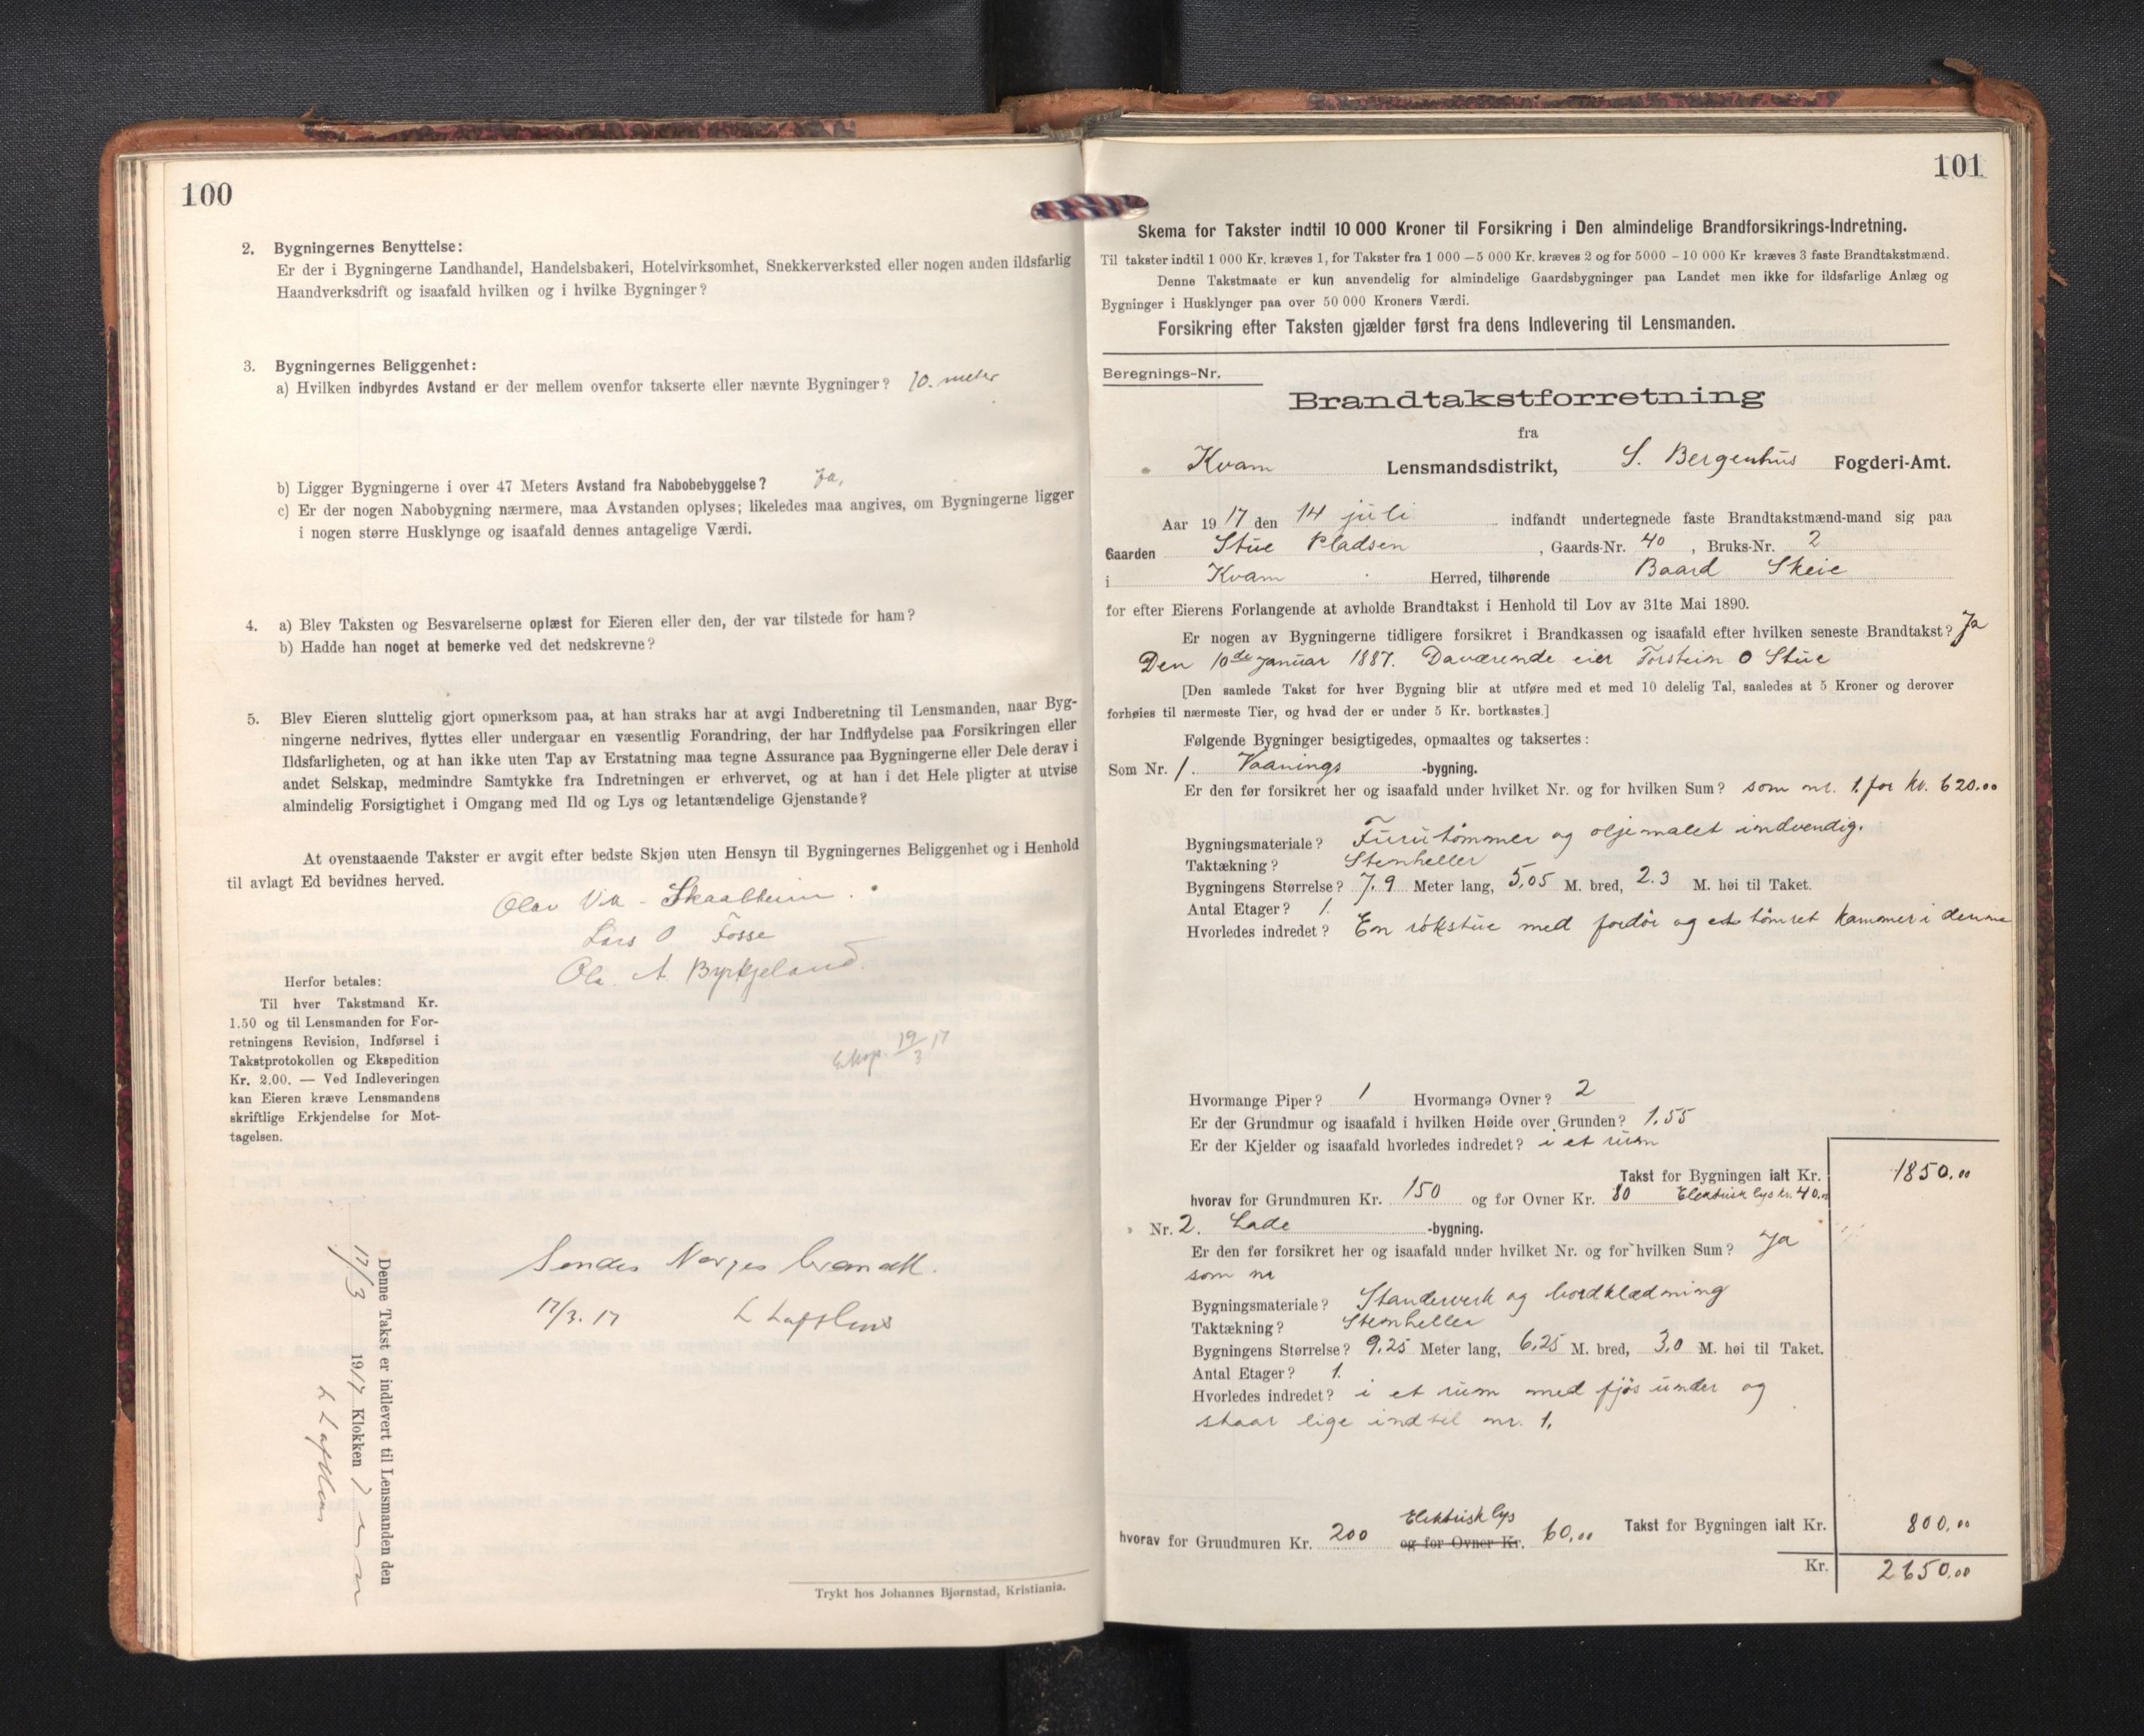 100
2. Bygningernes Benyttelse:
Er der i Bygningerne Landhandel, Handelsbakeri, Hotelvirksomhet, Snekkerverksted eller nogen anden ildsfarlig
Haandverksdrift og isaafald hvilken og i hvilke Bygninger?
3. Bygningernes Beliggenhet:
a) Hvilken indbyrdes Avstand er der mellem ovenfor takserte eller nævnte Bygninger? 10. meter
b) Ligger Bygningerne i over 47 Meters Avstand fra Nabobebyggelse? Ja,
c) Er der nogen Nabobygning nærmere, maa Avstanden oplyses; likeledes maa angives, om Bygningerne ligger
i nogen større Husklynge og isaafald dennes antagelige Værdi.
4. a) Blev Taksten og Besvarelserne oplæst for Eieren eller den, der var tilstede for ham?
b) Hadde han noget at bemerke ved det nedskrevne?
5. Blev Eieren sluttelig gjort opmerksom paa, at han straks har at avgi Indberetning til Lensmanden, naar Byg-
ningerne nedrives, flyttes eller undergaar en væsentlig Forandring, der har Indflydelse paa Forsikringen eller
Ildsfarligheten, og at han ikke uten Tap av Erstatning maa tegne Assurance paa Bygningerne eller Dele derav i
andet Selskap, medmindre Samtykke fra Indretningen er erhvervet, og at han i det Hele pligter at utvise
almindelig Forsigtighet i Omgang med Ild og Lys og letantændelige Gjenstande?
At ovenstaaende Takster er avgit efter bedste Skjøn uten Hensyn til Bygningernes Beliggenhet og i Henhold
til avlagt Ed bevidnes herved.
Olav Vik - Skaalheim.
Lars O Fosse
Ola. A. Byrkjeland.
Herfor betales:
Til hver Takstmand Kr.
1.50 og til Lensmanden for For-
retningens Revision, Indførsel i
Takstprotokollen og Ekspedition
Kr. 2.00. — Ved Indleveringen
kan Eieren kræve Lensmandens
skriftlige Erkjendelse for Mot-
tagelsen.
Eksp. 19/3 17
Sendes Norges brandk.
17/3. 17
Denne Takst er indlevert til Lensmanden den
17/3 1917 Klokken
Trykt hos Johannes Bjørnstad, Kristiania.
101
Skema for Takster indtil 10 000 Kroner til Forsikring i Den almindelige Brandforsikrings-Indretning.
Til takster indtil 1 000 Kr. kræves 1, for Takster fra 1 000—5 000 Kr. kræves 2 og for 5000 - 10 000 Kr kræves 3 faste Brandtakstmænd.
Denne Takstmaate er kun anvendelig for almindelige Gaardsbygninger paa Landet men ikke for ildsfarlige Anlæg og
Bygninger i Husklynger paa over 50 000 Kroners Værdi.
Forsikring efter Taksten gjælder først fra dens Indlevering til Lensmanden.
Beregnings-Nr.
Brandtakstforretning
fra
Kvam Lensmandsdistrikt, S. Bergenhus Fogderi-Amt.
Aar 1917 den 14 juli indfandt undertegnede faste Brandtakstmænd-mand sig paa
Gaarden Stue Pladsen, Gaards-Nr. 40, Bruks-Nr. 2
i Kvam Herred, tilhørende Baard Skeie
for efter Eierens Forlangende at avholde Brandtakst i Henhold til Lov av 31te Mai 1890.
Er nogen av Bygningerne tidligere forsikret i Brandkassen og isaafald efter hvilken seneste Brandtakst? Ja
Den 10de Januar 1887. Daværende eier Torstein O Stue
[Den samlede Takst for hver Bygning blir at utføre med et med 10 delelig Tal, saaledes at 5 Kroner og derover
forhøies til nærmeste Tier, og hvad der er under 5 Kr. bortkastes.]
Følgende Bygninger besigtigedes, opmaaltes og taksertes:
Som Nr. 1. Vaanings -bygning.
Er den før forsikret her og isaafald under hvilket Nr. og for hvilken Sum? som nr. 1. for kr. 620.00
Bygningsmateriale? Furutømmer og oljemalet indvendig.
Taktækning? Stenheller
Bygningens Størrelse? 7.9 Meter lang, 5,05 M. bred, 2.3 M. høi til Taket.
Antal Etager? 1.
Hvorledes indredet? En rökstue med fordör og et tömret kammer i denne
Hvormange Piper? 1 Hvormange Ovner? 2
Er der Grundmur og isaafald i hvilken Høide over Grunden? 1.55
Er der Kjelder og isaafald hvorledes indredet? i et rum
Takst for Bygningen ialt Kr. 1850.00
hvorav for Grundmuren Kr. 150 og for Ovner Kr. 80 Elektrisk lys kr. 40.00
Nr. 2. Lade -bygning.
Er den før forsikret her og isaafald under hvilket Nr. og for hvilken Sum? Ja
som nr
Bygningsmateriale? Standerverk og bordklædning
Taktækning? Stenheller
Bygningens Størrelse? 9.25 Meter lang, 6.25 M. bred, 3,0 M. høi til Taket.
Antal Etager? 1.
Hvorledes indredet? i et rum med fjös under og
staar lige indtil nr. 1.
Elektrisk lys
hvorav for Grundmuren Kr. 200 og for Ovner Kr. 60.00 Takst for Bygningen ialt Kr. 800.00
Kr. 2650.00